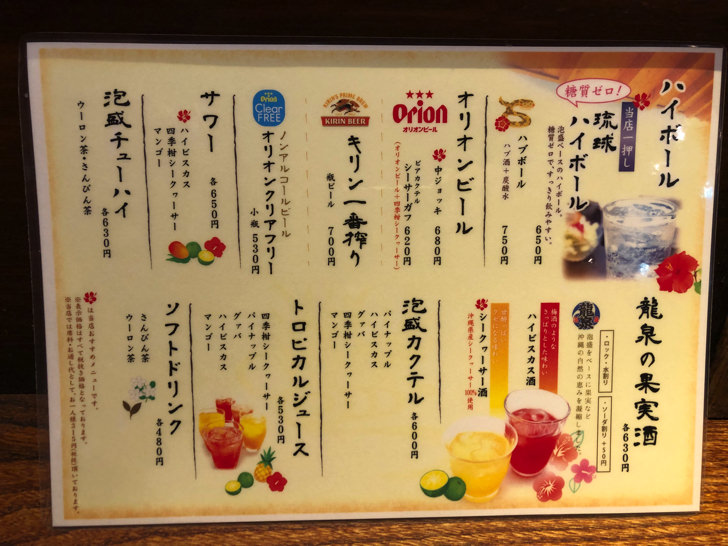 ハイボール
糖質ゼロ!
当店一押し
琉球
ハイボール
泡盛ベースのハイボール。
糖質ゼロで、すっきり飲みやすい。
650円
ハブボール
ハブ酒+炭酸水
750円
オリオンビール
Orion
オリオンビール
中ジョッキ
680円
ビアカクテル
シーサーガフ
620円
(オリオンビール+四季柑シークヮーサー)
KIRIN'S PRIME BREW
KIRIN BEER
キリン一番搾り
瓶ビール
700円
Orion
Clear
FREE
ノンアルコールビール
オリオンクリアフリー
小瓶 530円
サワー
各650円
ハイビスカス
四季柑シークヮーサー
マンゴー
泡盛チューハイ
ウーロン茶・さんぴん茶
各630円
龍泉の果実酒
各630円
・ロック・水割り
・ソーダ割り+50円
龍泉
泡盛をベースに果実など
沖縄の自然の恵みを凝縮しました。
梅酒のような
さっぱりとした味わい
ハイビスカス酒
シークヮーサー酒
沖縄県産シークヮーサー100%使用
泡盛カクテル
各600円
パイナップル
ハイビスカス
グァバ
四季柑シークヮーサー
マンゴー
トロピカルジュース
各530円
四季柑シークヮーサー
パイナップル
グァバ
ハイビスカス
マンゴー
ソフトドリンク
各480円
さんぴん茶
ウーロン茶
は当店おすすめメニューです。
※表示価格はすべて税抜き価格となっております。
※当店では席料・お通し代として、お一人様315円(税抜)頂いております。